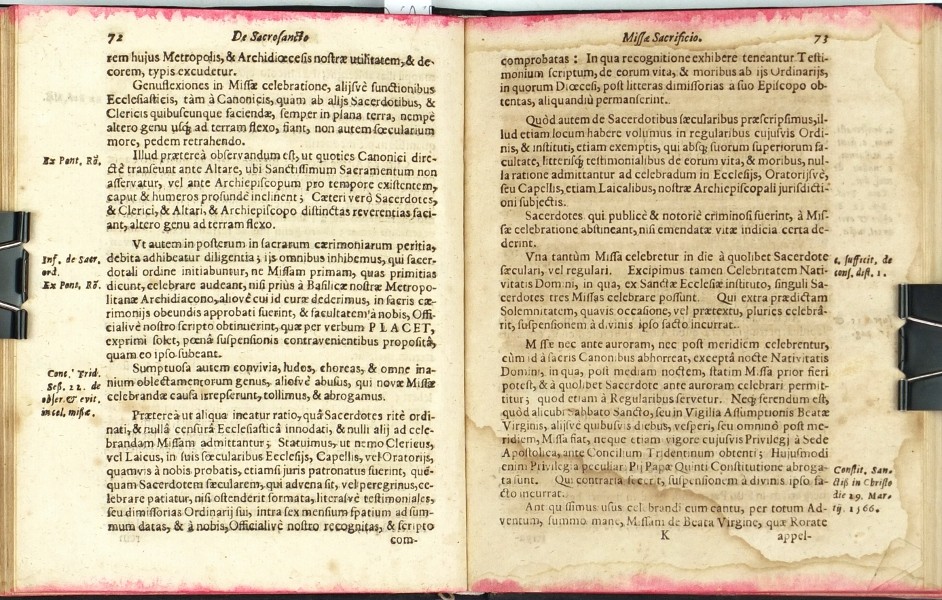 72 De Sacrosancto
rem hujus Metropolis, & Archidiœcesis nostræ utilitatem, & de-
corem, typis excudetur.
Genuflexiones in Missæ celebratione, alijsvè functionibus
Ecclesiasticis, tàm à Canonicis, quam ab alijs Sacerdotibus, &
Clericis quibuscunque faciendæ, semper in plana terra, nempè
altero genu usq; ad terram flexo, fiant, non autem sæcularium
more, pedem retrahendo.
Ex Pont, Rõ.
Illud præterea observandum est, ut quoties Canonici dire-
ctè transeunt ante Altare, ubi Sanctissimum Sacramentum non
asservatur, vel ante Archiepiscopum pro tempore existentem,
caput & humeros profundè inclinent; Cæteri verò Sacerdotes,
& Clerici, & Altari, & Archiepiscopo distinctas reverentias faci-
ant, altero genu ad terram flexo.
Inf. de Sacr.
ord.
Ex Pont, Rõ.
Vt autem in posterum in sacrarum cærimoniarum peritia,
debita adhibeatur diligentia; ijs omnibus inhibemus, qui sacer-
dotali ordine initiabuntur, ne Missam primam, quas primitias
dicunt, celebrare audeant, nisi priùs à Basilicæ nostræ Metropo-
litanæ Archidiacono, aliovè cui id curæ dederimus, in sacris cæ-
rimonijs obeundis approbati fuerint, & facultatem à nobis, Offi-
cialivè nostro scripto obtinuerint, quæ per verbum PLACET,
exprimi solet, pœnâ suspensionis contravenientibus propositâ,
quam eo ipso subeant.
Conc. Trid.
Seß. 22. de
obser. & evit.
in cel, missæ.
Sumptuosa autem convivia, ludos, choreas, & omne ina-
nium oblectamentorum genus, aliosvè abusus, qui novæ Missæ
celebrandæ causa irrepserunt, tollimus, & abrogamus.
Præterea ut aliqua ineatur ratio, quâ Sacerdotes ritè ordi-
nati, & nullâ censurâ Ecclesiasticâ innodati, & nulli alij ad cele-
brandam Missam admittantur; Statuimus, ut nemo Clericus,
vel Laicus, in suis sæcularibus Ecclesijs, Capellis, vel Oratorijs,
quamvis à nobis probatis, etiamsi juris patronatus fuerint, quẽ-
quam Sacerdotem sæcularem, qui advena sit, vel peregrinus, ce-
lebrare patiatur, nisi ostenderit formata, literasvè testimoniales,
seu dimissorias Ordinarij sui, intra sex mensium spatium ad sum-
mum datas, & à nobis, Officialivè nostro recognitas, & scripto
com-
Missæ Sacrificio. 73
comprobatas: In qua recognitione exhibere teneantur Testi-
monium scriptum, de eorum vita, & moribus ab ijs Ordinarijs,
in quorum Diœcesi, post litteras dimissorias a suo Episcopo ob-
tentas, aliquandiù permanserint.
Quòd autem de Sacerdotibus sæcularibus præscripsimus, il-
lud etiam locum habere volumus in regularibus cujusvis Ordi-
nis, & instituti, etiam exemptis, qui absq; suorum superiorum fa-
cultate, littensq; testimonialibus de eorum vita, & moribus, nul-
la ratione admittantur ad celebradum in Ecclesijs, Oratorijsvè,
seu Capellis, etiam Laicalibus, nostræ Archiepiscopali jurisdicti-
oni subjectis.
Sacerdotes qui publicè & notoriè criminosi fuerint, à Mis-
sæ celebratione abstineant, nisi emendatæ vitæ indicia certa de-
derint.
Vna tantùm Missa celebretur in die à quolibet Sacerdote
sæculari, vel regulari. Excipimus tamen Celebritatem Nati-
vitatis Domini, in qua, ex Sanctæ Ecclesiæ instituto, singuli Sa-
cerdotes tres Missas celebrare possunt. Qui extra prædictam
Solemnitatem, quavis occasione, vel prætextu, pluries celebrâ-
rit, suspensionem à divinis ipso facto incurrat.
c, sufficit, de
cons, dist. 1.
Missæ nec ante auroram, nec post meridiem celebrentur,
cùm id à sacris Canonibus abhorreat, exceptâ nocte Nativitatis
Domini, in qua, post mediam noctem, statim Missa prior fieri
potest, & à quolibet Sacerdote ante auroram celebrari permit-
titur; quod etiam à Regularibus servetur. Neq; ferendum est,
quòd alicubi Sabbato Sancto, seu in Vigilia Assumptionis Beatæ
Virginis, alijsvè quibusvis diebus, vesperi, seu omninò post me-
ridiem, Missa fiat, neque etiam vigore cujusvis Privilegij à Sede
Apostolica, ante Concilium Tridentinum obtenti; Hujusmodi
enim Privilegia peculiari Pij Papæ Quinti Constitutione abroga-
ta sunt. Qui contraria fecerit, suspensionem à divinis ipso fa-
cto incurrat.
Constit. San-
ctiß in Christo
die 29. Mar-
tij. 1566.
Antiquissimus usus celebrandi cum cantu, per totum Ad-
ventum, summo mane, Missam de Beata Virgine, quæ Rorate
K appel-